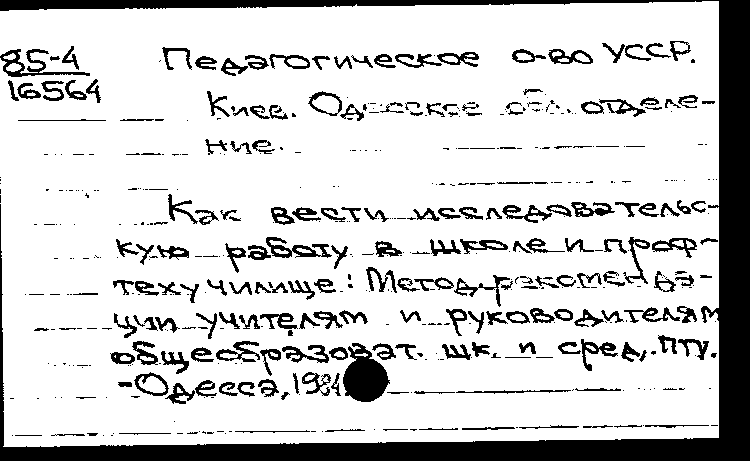 85-4
16564
Педагогическое о-во УССР.
Киев. Одесское обл. отделе-
ние.
Как вести исследовательс-
кую работу в школе и проф-
техучилище: Метод. рекоменда-
ции учителям и руководителям
общеобразоват. шк. и сред. ПТУ.
-Одесса, 1984